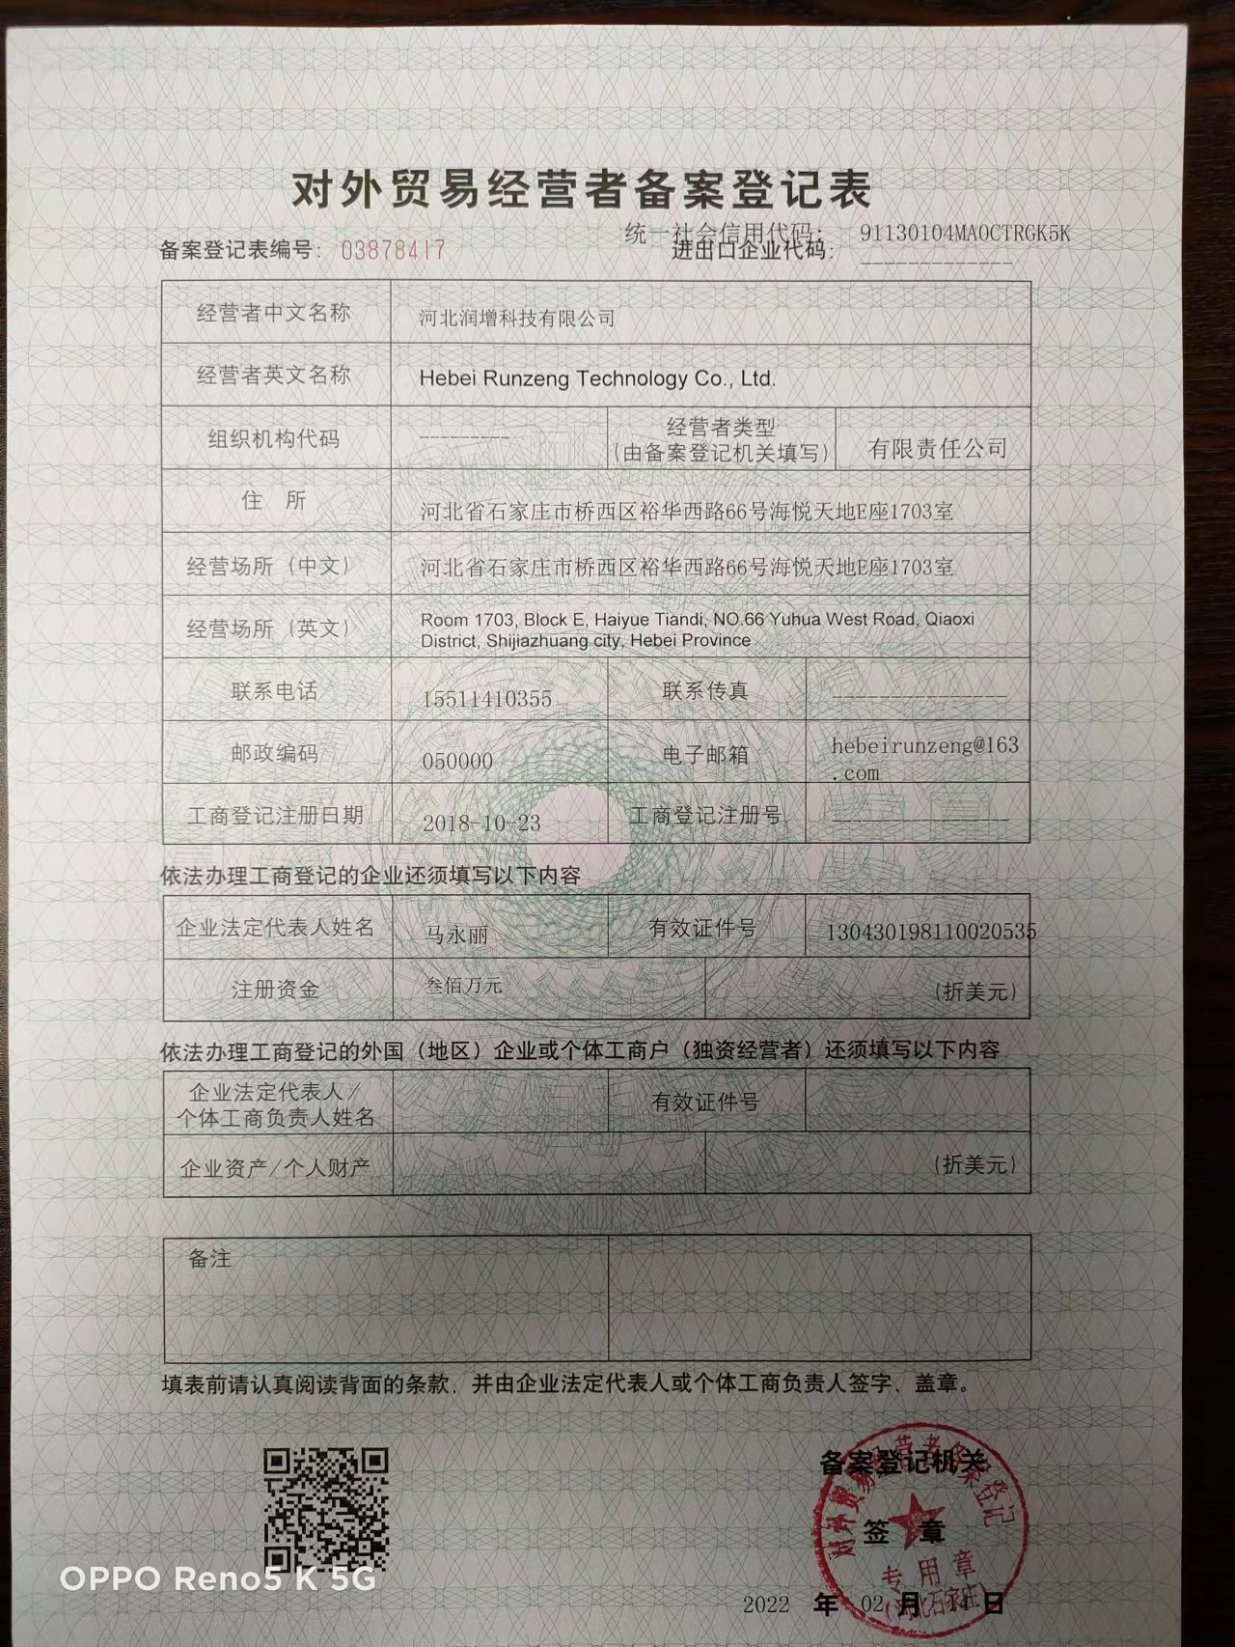 对外贸易经营者备案登记表
统一社会信用代码： 91130104MA0CTRGK5K
备案登记表编号：03878417 进出口企业代码：
经营者中文名称 河北润增科技有限公司
经营者英文名称 Hebei Runzeng Technology Co., Ltd.
组织机构代码 --------- 经营者类型
(由备案登记机关填写) 有限责任公司
住 所 河北省石家庄市桥西区裕华西路66号海悦天地E座1703室
经营场所（中文） 河北省石家庄市桥西区裕华西路66号海悦天地E座1703室
经营场所（英文） Room 1703, Block E, Haiyue Tiandi, NO.66 Yuhua West Road, Qiaoxi
District, Shijiazhuang city, Hebei Province
联系电话 15511410355 联系传真 ---------------
邮政编码 050000 电子邮箱 hebeirunzeng@163
.com
工商登记注册日期 2018-10-23 工商登记注册号 ---------------
依法办理工商登记的企业还须填写以下内容
企业法定代表人姓名 马永丽 有效证件号 130430198110020535
注册资金 叁佰万元 (折美元)
依法办理工商登记的外国（地区）企业或个体工商户（独资经营者）还须填写以下内容
企业法定代表人/
个体工商负责人姓名 有效证件号
企业资产/个人财产 (折美元)
备注
填表前请认真阅读背面的条款，并由企业法定代表人或个体工商负责人签字、盖章。
备案登记机关
签 章
对外贸易经营者备案登记
专用章
(河北石家庄)
2022 年 02 月 日
OPPO Reno5 K 5G